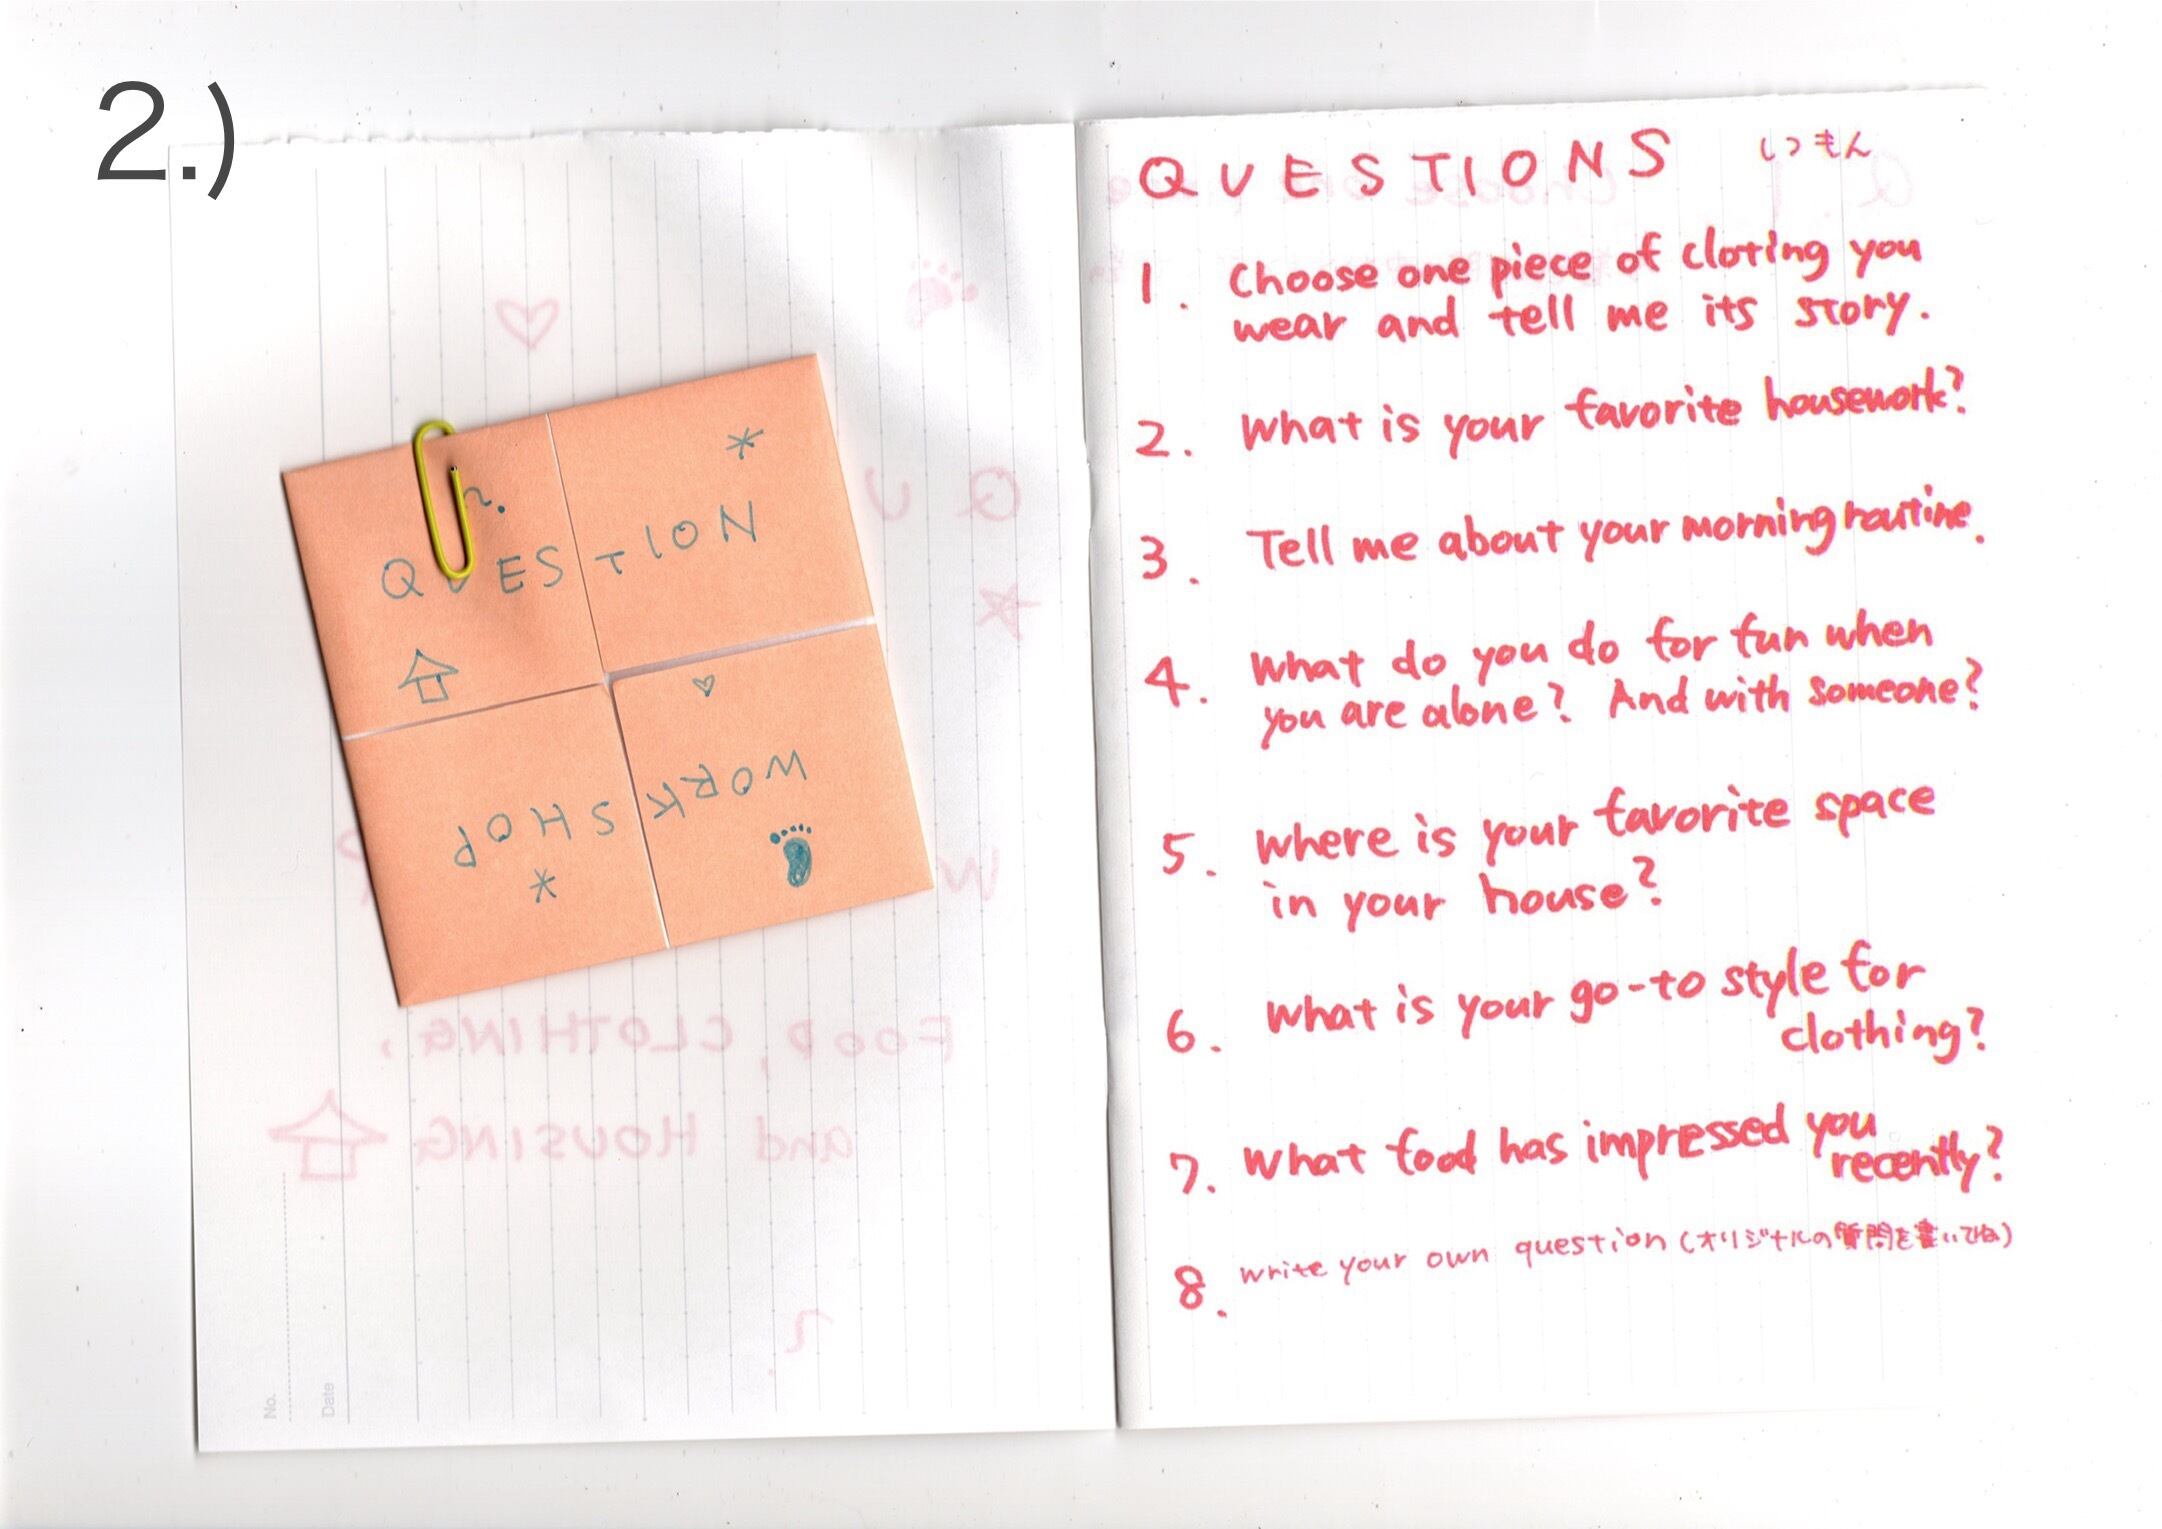 2.)
?
QUESTION
WORK SHOP
FOOD, CLOTHING,
and HOUSING
No.
Date
QUESTIONS しつもん
1. Choose one piece of cloting you
wear and tell me its story.
2. What is your favorite housework?
3. Tell me about your morning routine.
4. What do you do for fun when
you are alone? And with someone?
5. Where is your favorite space
in your house?
6. What is your go-to style for
clothing?
7. What food has impressed you
recently?
8. write your own question (オリジナルの質問を書いてね)